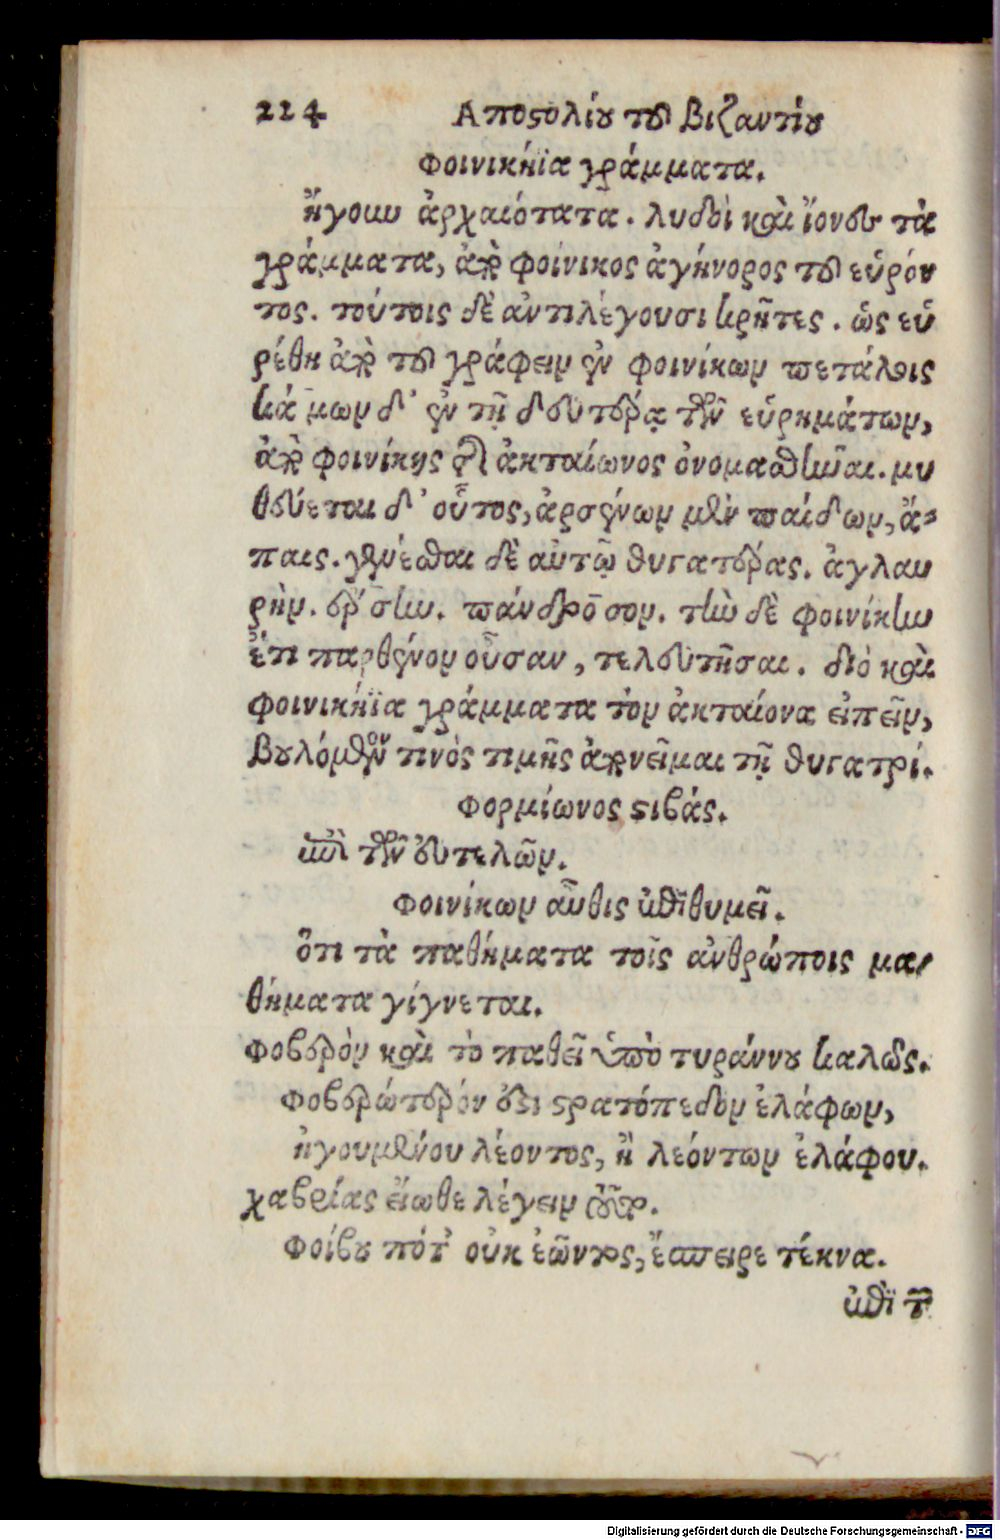 224 Αποστολίου τοῦ βιζαντίου
Φοινικήϊα γράμματα.
ἤγουν ἀρχαιότατα. λυδοὶ καὶ ἴονες τὰ
γράμματα, ἀπὸ φοίνικος ἀγήνορος τοῦ εὑρόν
τος. τούτοις δὲ ἀντιλέγουσι κρῆτες. ὡς εὑ
ρέθη ἀπὸ τοῦ γράφειν ἐν φοινίκων πετάλοις
κά μων δ' ἐν τῇ δευτέρᾳ τῶν εὑρημάτων,
ἀπὸ φοινίκης τῆς ἀκταίωνος ὀνομασθῆναι. μυ
θεύεται δ' οὗτος, ἀρσένων μὲν παίδων, ἄ-
παις. γενέσθαι δὲ αὐτῷ θυγατέρας. ἀγλαυ
ρὴν. ἔρσην. πάνδροσον. τὴν δὲ φοινίκην
ἔτι παρθένον οὖσαν, τελευτῆσαι. διό καὶ
φοινικήϊα γράμματα τὸν ἀκταίονα εἰπεῖν,
βουλόμενόν τινὸς τιμῆς ἀπονεῖμαι τῇ θυγατρί.
Φορμίωνος στιβάς.
ἐπὶ τῶν εὐτελῶν.
Φοινίκων αὖθις ἐπιθυμεῖ.
ὅτι τὰ παθήματα τοῖς ἀνθρώποις μα-
θήματα γίγνεται.
Φοβερὸν καὶ τὸ παθεῖ ὑπὸ τυράννου καλῶς.
Φοβερώτερόν ἐστι στρατόπεδον ἐλάφων,
ἡγουμένου λέοντος, ἢ λεόντων ἐλάφου.
χαβρίας εἴωθε λέγειν οὕτως.
Φοίβου πότ' οὐκ ἐῶντος, ἔσπειρε τέκνα.
ἐπὶ τ
Digitalisierung gefördert durch die Deutsche Forschungsgemeinschaft - DFG